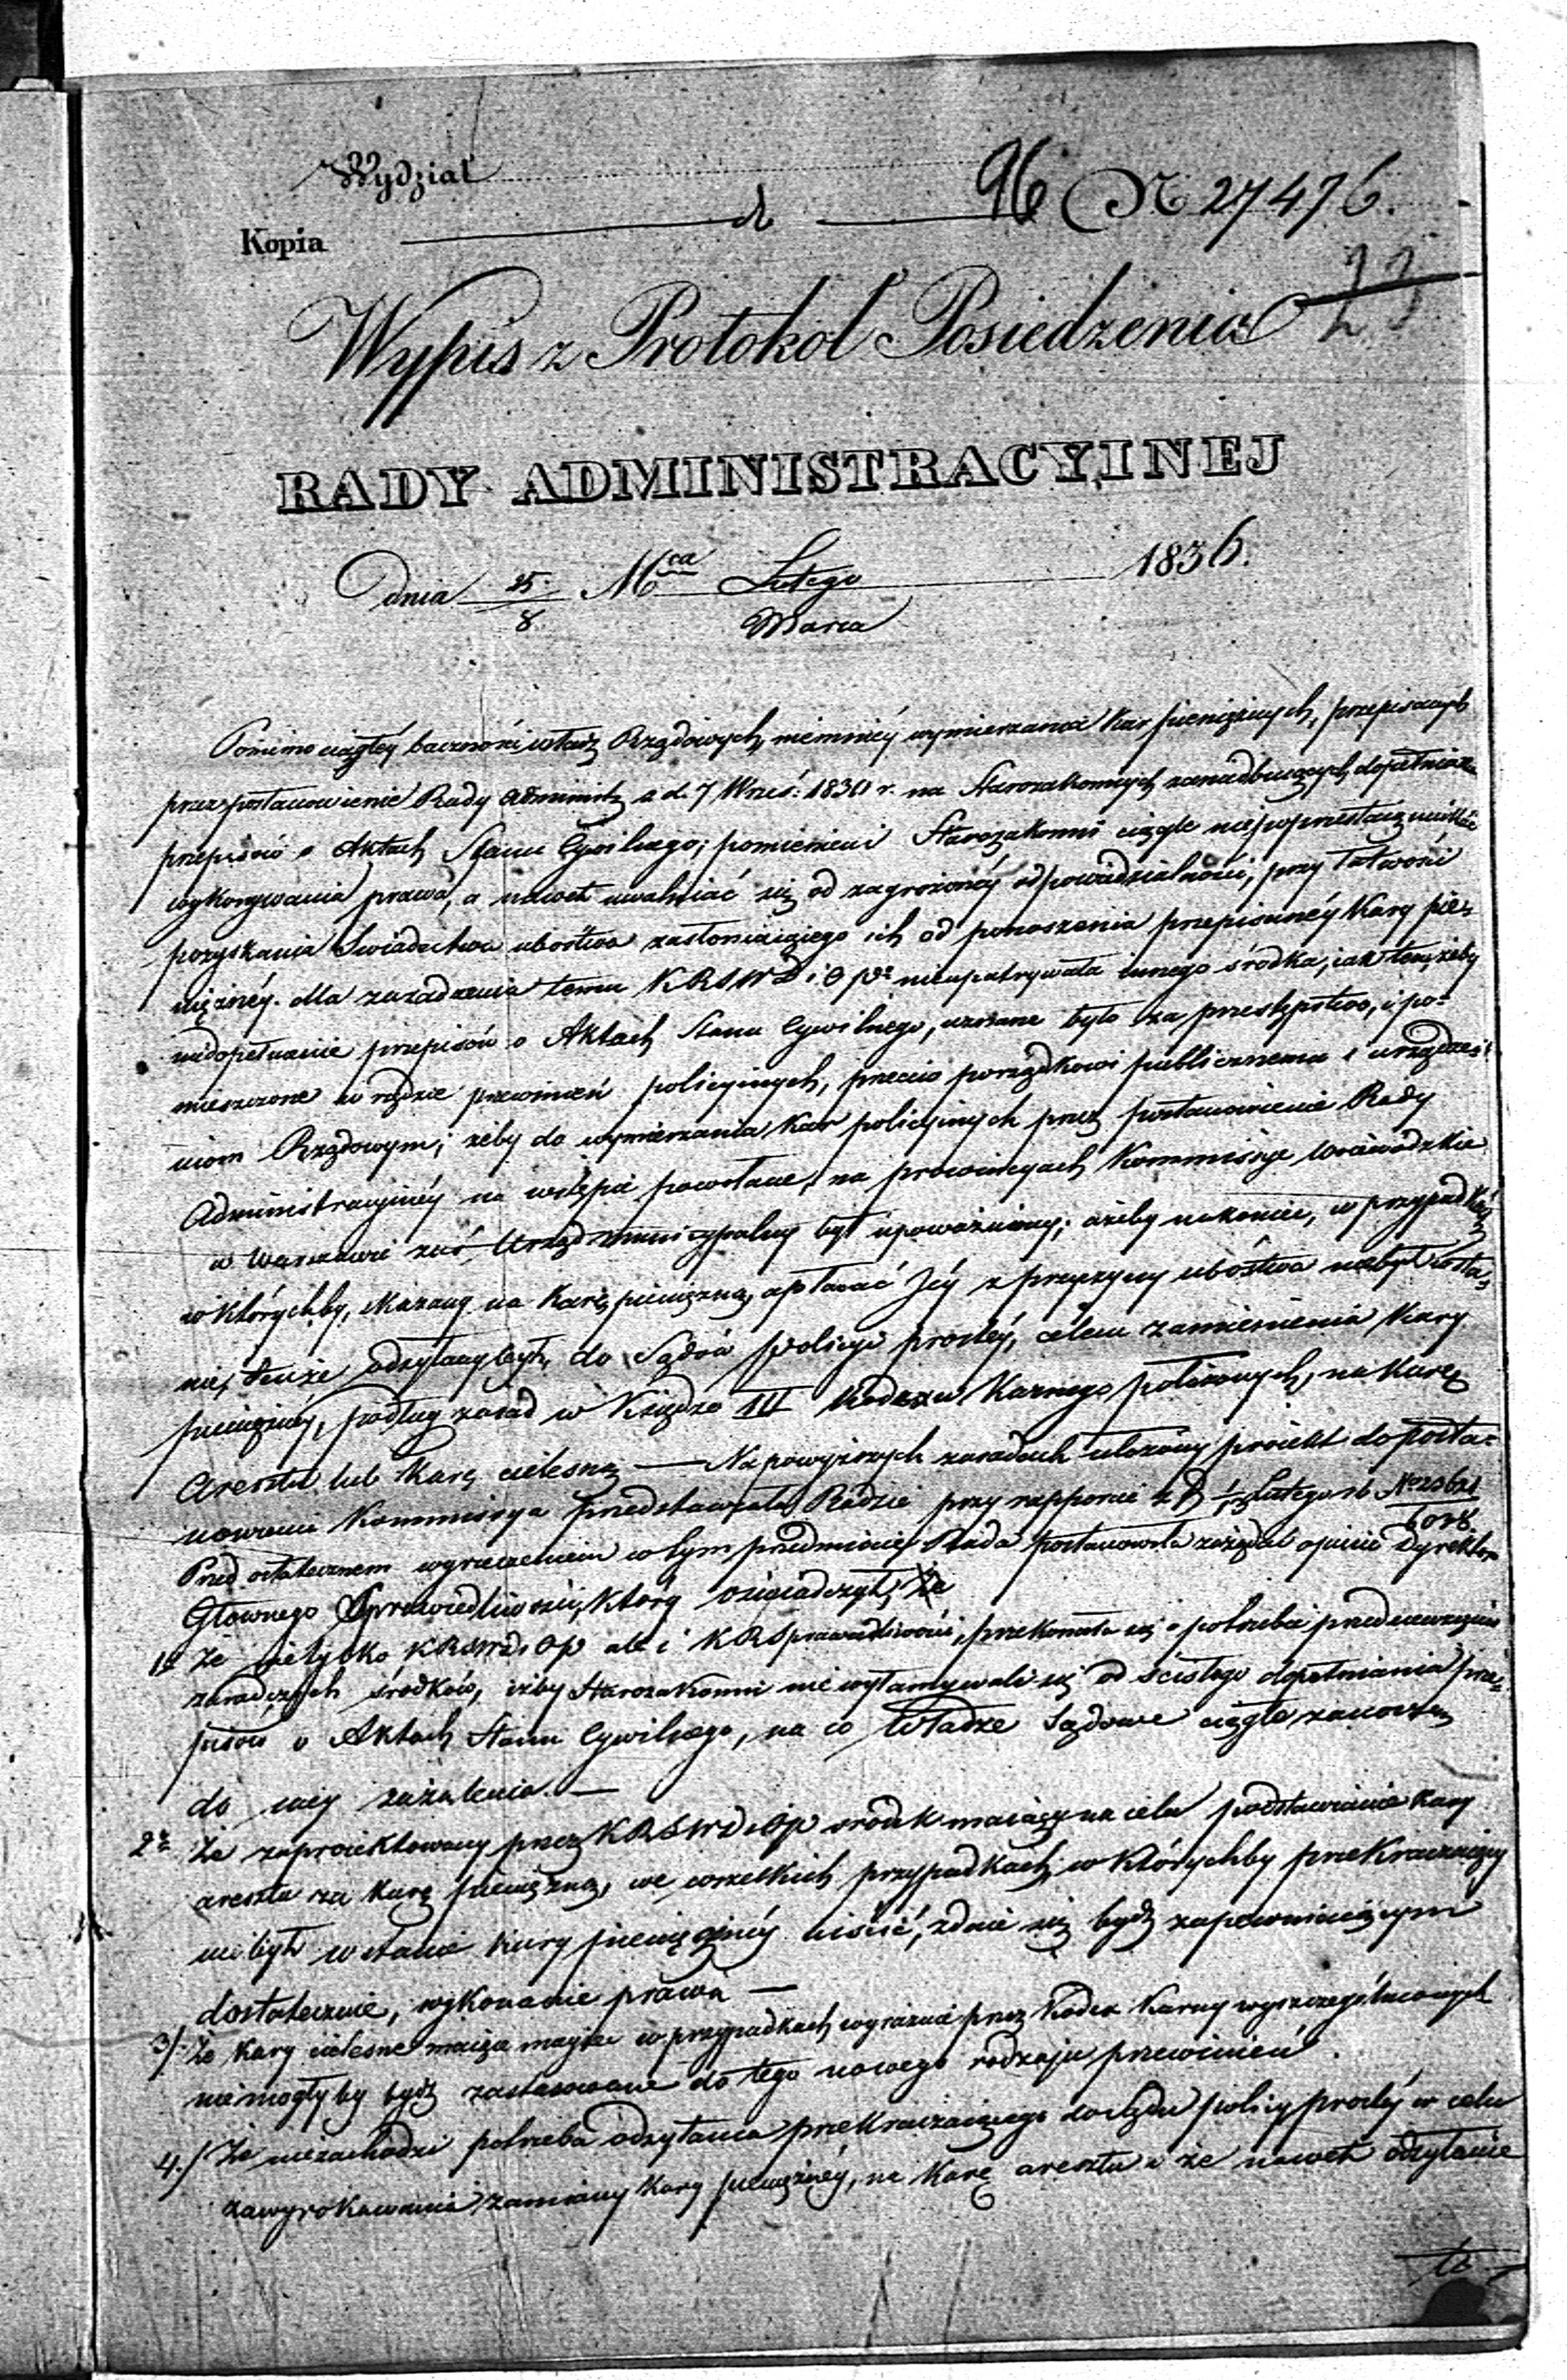 Wydział
96 N 27476.
Kopia
23
Wypis z Protokół Posiedzenia
RADY ADMINISTRACYINEJ
Dnia 25/8 Mca Lutego/Marca 1836.
Pomimo ciągłéy baczności władz Rządowych, niemniéy wymierzania kar pieniężnych, przepisanych
przez postanowienie Rady Administr z d. 7 Wrześ: 1830 r. na Starozakonnych zaniedbuiących dopełniania
przepisów o Aktach Stanu Cywilnego; pomienieni Starozakonni ciągle nie poprzestaią unikać
wykonywania prawa, a nawet uwalniać się od zagrożonéy odpowiedzialności, przy łatwości
pozyskania Świadectwa ubóstwa zasłaniaiącego ich od ponoszenia przepisanéy Kary pie-
niężnéy. dla zaradzenia temu KRSWD i O P. nieupatrywała innego środka, iak ten, żeby
niedopełnianie przepisów o Aktach Stanu Cywilnego, uznane było za przestępstwo, i po-
mieszczone w rzędzie przewinień policyinych, przeciw porządkowi publicznemu i urządze-
niom Rządowym; żeby do wymierzania Kar policyinych przez postanowienie Rady
Administracyinéy na wstępie powołane, na prowincyach Kommissye Woiewódzkie
w Warszawie zaś Urząd Municypalny był upoważniony; ażeby nakoniec, w przypadkach
w którychby, skazany na Karę pieniężną, opłacać Jéy z przyczyny ubóstwa niebył w sta-
nie, tenże odsyłany był, do Sądów policyi prostéy, celem zamienienia Kary
pieniężnéy, podług zasad w Księdze III Kodexu Karnego położonych, na Karę
Aresztu lub Karę cielesną — Na powyższych zasadach ułożony proiekt do posta-
nowienia Kommissya przedstawiała Radzie przy rapporcie z D 1/13 Lutego rb No 20621/6078.
Przed ostatecznem wyrzeczeniem w tym przedmiocie, Rada postanowiła zażądać opinii Dyrektora
Głównego Sprawiedliwości, który oświadczył, że
1e Że nietylko KRSWD i OP ale i KRSprawiedliwości, przekonała się o potrzebie przedsięwzięcia
zaradczych środków, iżby Starozakonni nie wyłamywali się od ścisłego dopełniania prze-
pisów o Aktach Stanu Cywilnego, na co Władze Sądowe ciągle zanoszą
do niéy zażalenia. —
2e Że zaproiektowany przez KRSWD i OP środek maiący na celu podstawianie kary
aresztu za karę pieniężną, we wszelkich przypadkach, w którychby przekraczaiący
nie był w stanie kary pieniężnéy uiścić, zdaie się bydź zapewniaiącym
dostatecznie, wykonanie prawa —
3/. Że kary cielesne maiące mieysce w przypadkach wyraźnie przez Kodex Karny wyszczególnionych
nie mogłyby bydź zastosowane do tego nowego rodzaiu przewinień.
4./ Że niezachodzi potrzeba odsyłania przekraczaiącego do Sądu policyi prostéy w celu
zawyrokowania zamiany kary pieniężnéy, na Karę aresztu i że nawet odsyłanie
to